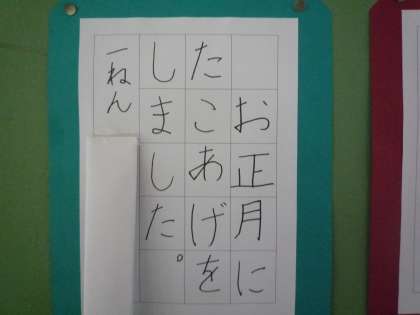 お正月に
たこあげを
しました。
一ねん